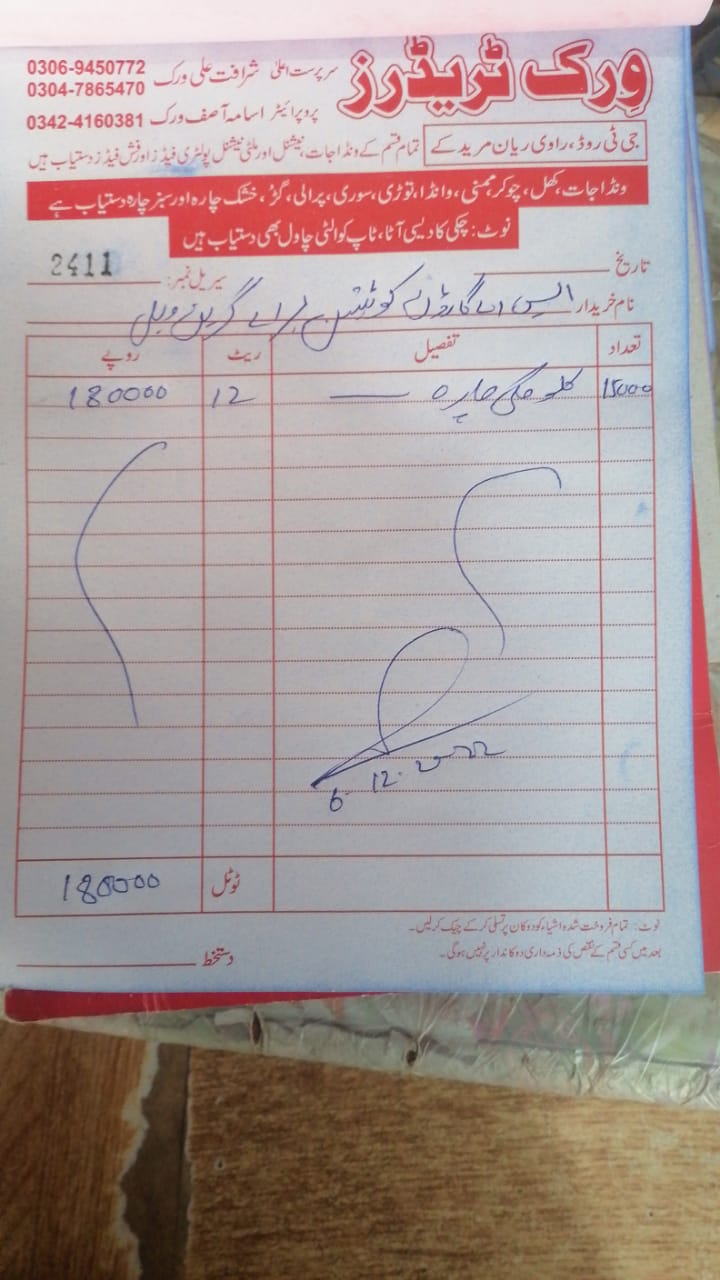 ورک ٹریڈرز
سرپرست اعلیٰ شرافت علی ورک 0306-9450772
0304-7865470
پروپرائیٹر اسامہ آصف ورک 0342-4160381
جی ٹی روڈ، راوی ریان مرید کے
تمام قسم کے ونڈا جات، نیشنل اور ملٹی نیشنل پولٹری فیڈز اور فش فیڈز دستیاب ہیں
ونڈا جات، کھل، چوکر، ممنی، وانڈا، توڑی، سوری، پرالی، گڑ، خشک چارہ اور سبز چارہ دستیاب ہے
نوٹ: چکی کا دیسی آٹا، ٹاپ کوالٹی چاول بھی دستیاب ہیں
تاریخ سیریل نمبر: 2411
نام خریدار ایس اے گارڈن
تعداد تفصیل ریٹ روپے
15000 کلو مکئی چارہ 12 180000
6-12-2022
ٹوٹل 180000
نوٹ: تمام فروخت شدہ اشیاء کو دوکان پر تسلی کر کے چیک کر لیں۔
بعد میں کسی قسم کے نقص کی ذمہ داری دوکاندار پر نہیں ہوگی۔
دستخط